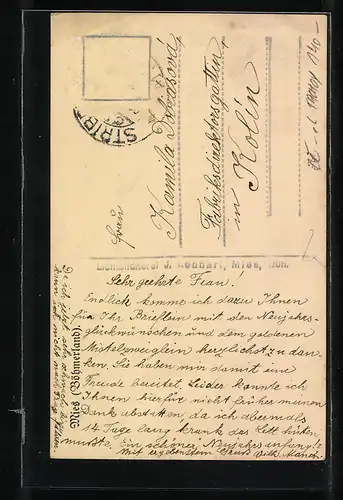 Frau
Kamila Kovářová
Fabriksdirektorsgattin
in Kolín
STŘÍBR
Lichtdruckerei J. Lenhart, Mies, Böh.
Sehr geehrte Frau!
Endlich komme ich dazu Ihnen
für Ihr Brieflein mit den Neujahrs-
glückwünschen und dem goldenen
Mistelzweiglein herzlichst zu dan-
ken. Sie haben mir damit eine
Freude bereitet. Leider konnte ich
Ihnen hierfür nicht früher meinen
Dank abstatten, da ich abermals
14 Tage lang krank das Bett hüten
musste. Ein schöner Neujahrsanfang!!
Mit ergebenstem Gruss Wilh.
Mies (Böhmerland).
kann ich nicht